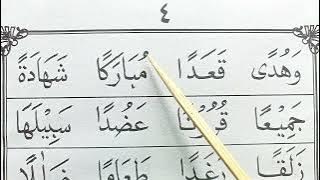 ٤
وَهُدًى قَعَدَا مُبَارَكًا شَهَادَةً
جَمِيْعًا عَضُدًا سَبِيْلَهَا
زَلَقًا رَغَدًا طَعَامًا